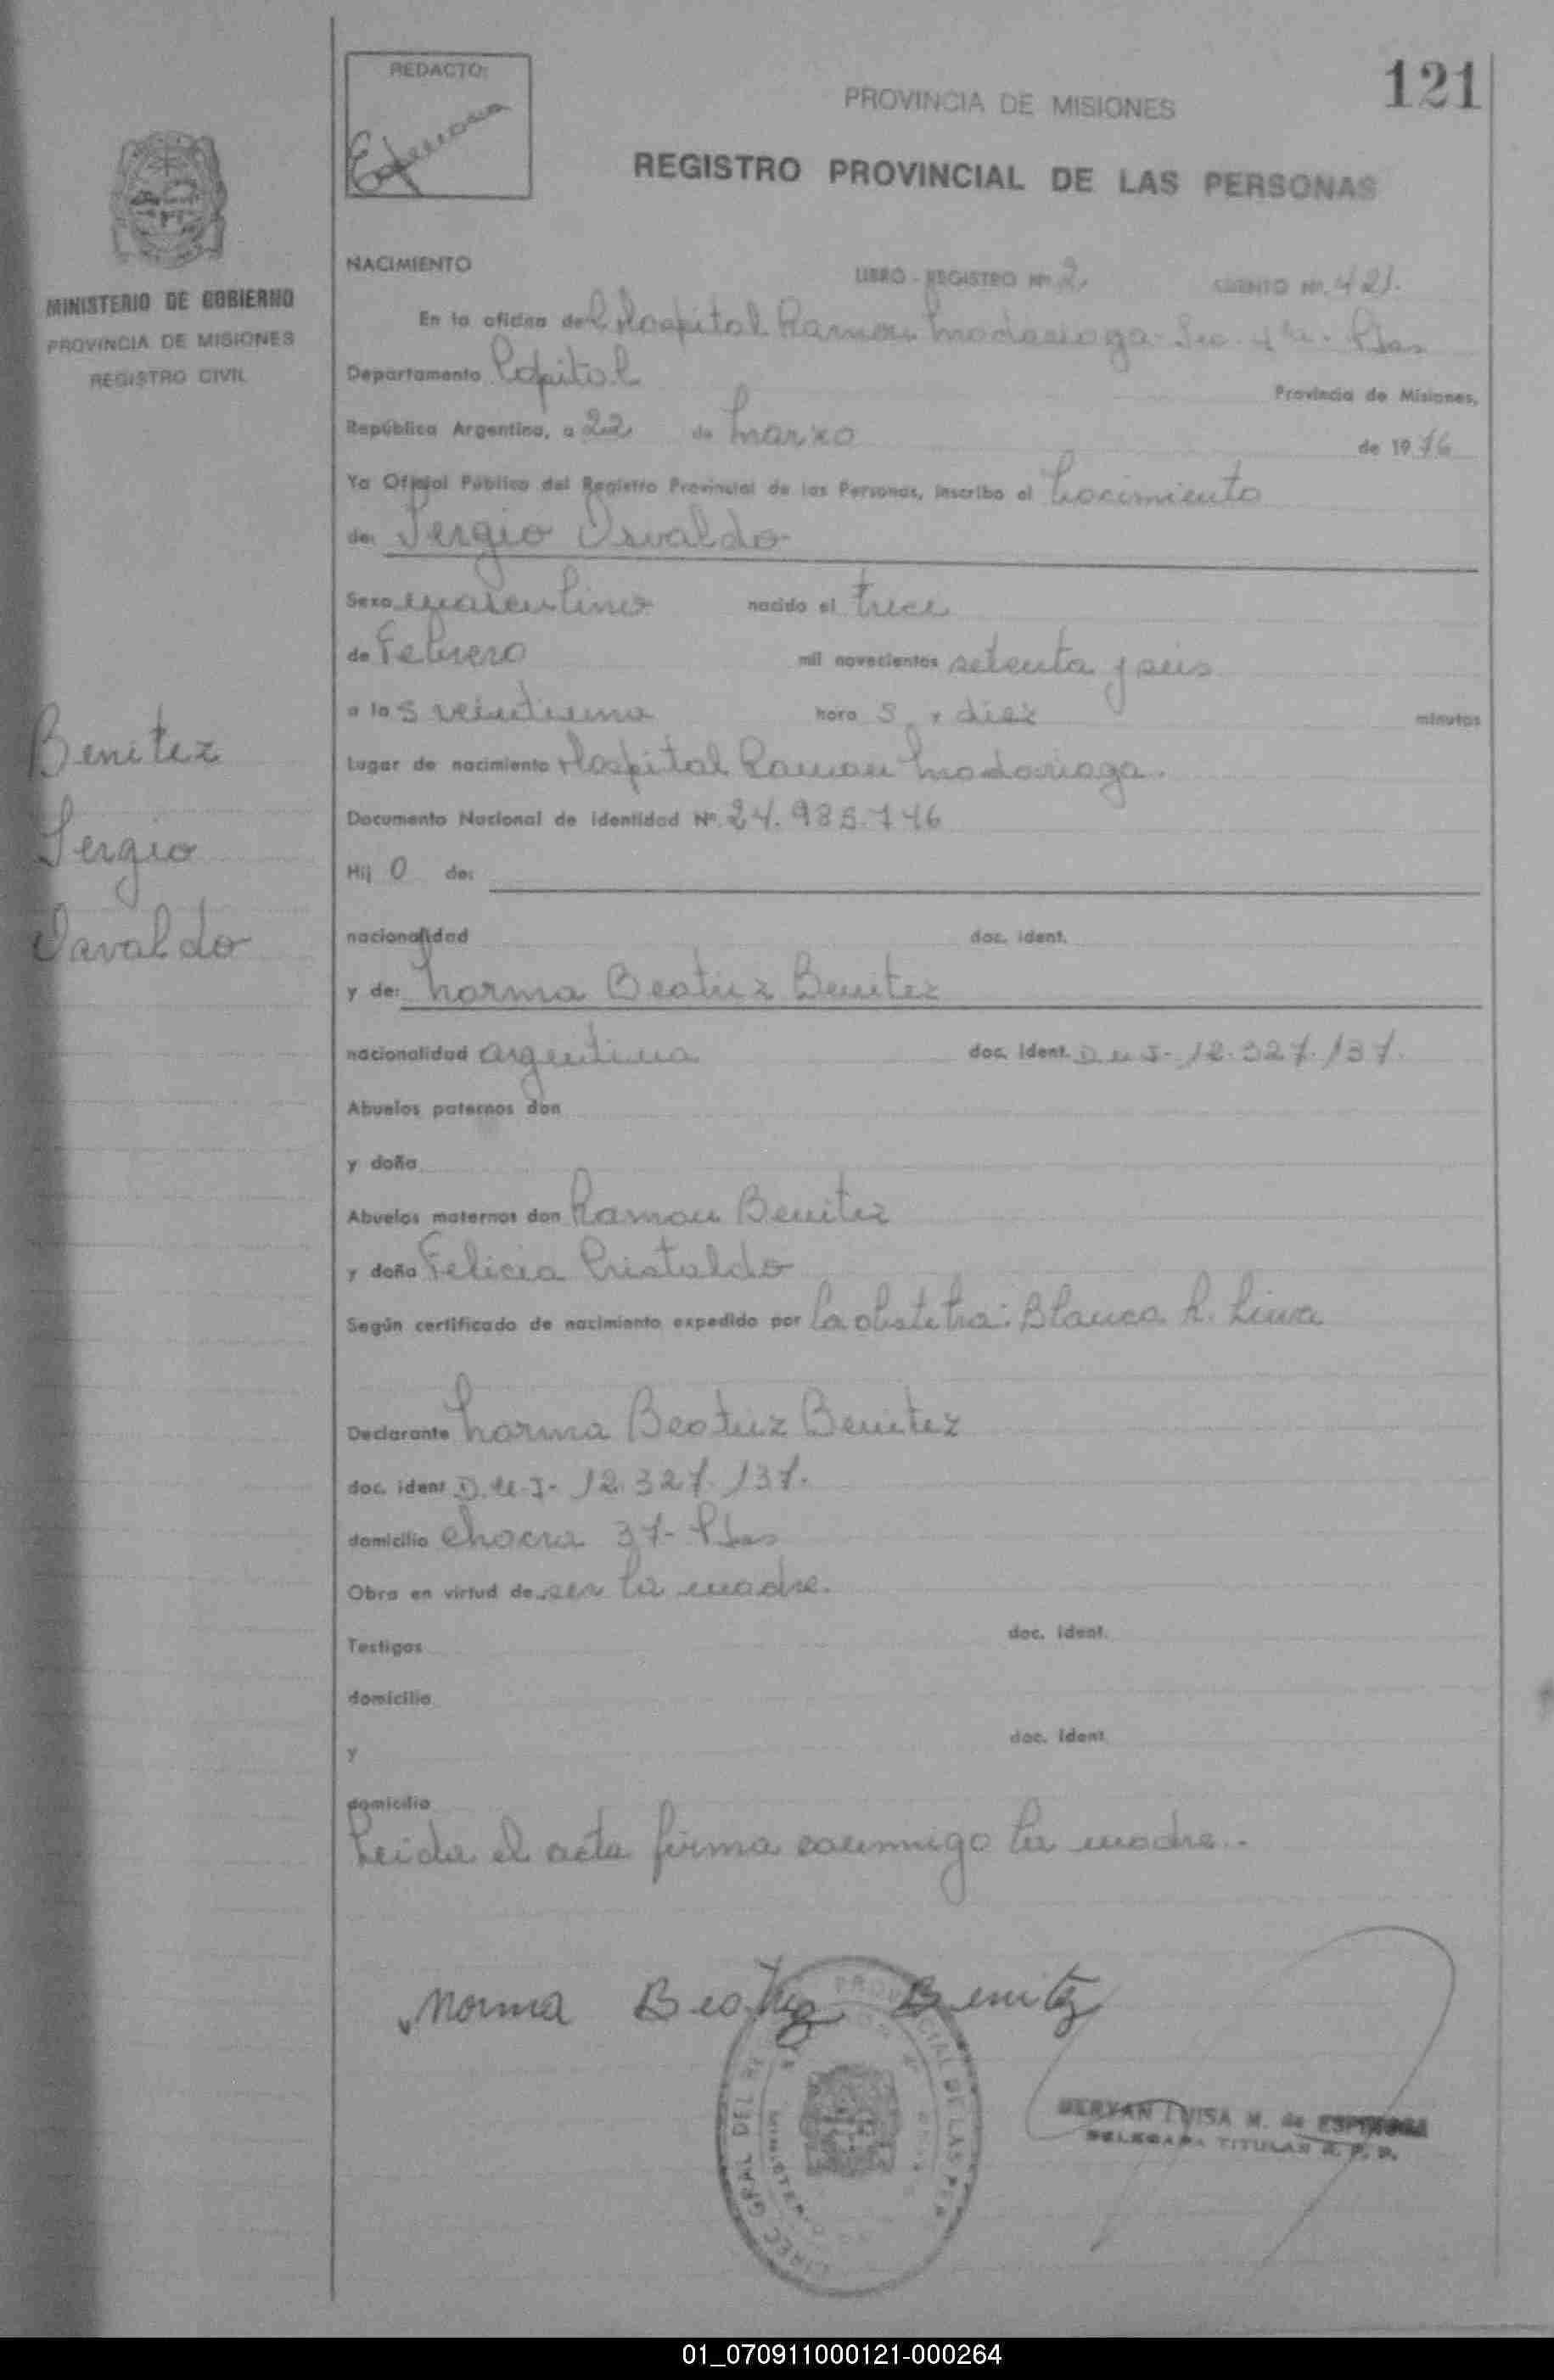 REDACTO:
121
PROVINCIA DE MISIONES
REGISTRO PROVINCIAL DE LAS PERSONAS
MINISTERIO DE GOBIERNO
PROVINCIA DE MISIONES
REGISTRO CIVIL
Benitez
Sergio
Osvaldo
NACIMIENTO LIBRO - REGISTRO Nº 2. ASIENTO Nº. 421.
En la oficina del Hospital Ramon Madariaga - Sec. 4ta. Pdas
Departamento Capital Provincia de Misiones,
República Argentina, a 22 de Marzo de 1976
Yo Oficial Público del Registro Provincial de las Personas, inscribo el Nacimiento
de: Sergio Osvaldo
Sexo masculino nacido el trece
de Febrero mil novecientos setenta y seis
a las veintiuna horas y diez minutos
Lugar de nacimiento Hospital Ramon Madariaga.
Documento Nacional de identidad Nº 24.985.746
Hijo de:
nacionalidad doc. ident.
y de: Norma Beatriz Benitez
nacionalidad argentina doc. ident. D.N.I- 12.327.137.
Abuelos paternos don
y doña
Abuelos maternos don Ramon Benitez
y doña Felicia Cristaldo
Según certificado de nacimiento expedido por la obstetra: Blanca R.
Declarante Norma Beatriz Benitez
doc. ident D.N.I- 12.327.137.
domicilio Chacra 37- Pdas
Obra en virtud de ser la madre.
Testigos doc. ident.
domicilio
y doc. ident.
domicilio
Leida el acta firma conmigo la madre.-
Norma Beatriz Benitez
LUISA M. de ESPINOSA
DELEGADA TITULAR R. P. P.
01_070911000121-000264